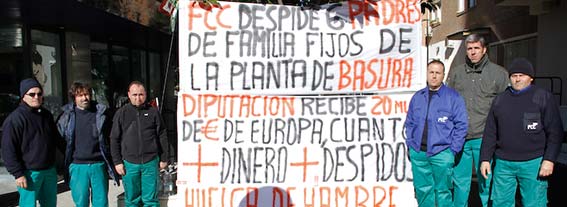 FCC DESPIDE 6 PADRES
DE FAMILIA FIJOS DE
LA PLANTA DE BASURA
DIPUTACION RECIBE 20 MIL
DE € DE EUROPA, CUANTO
+ DINERO + DESPIDOS
HUELGA DE HAMBRE
FCC
FCC